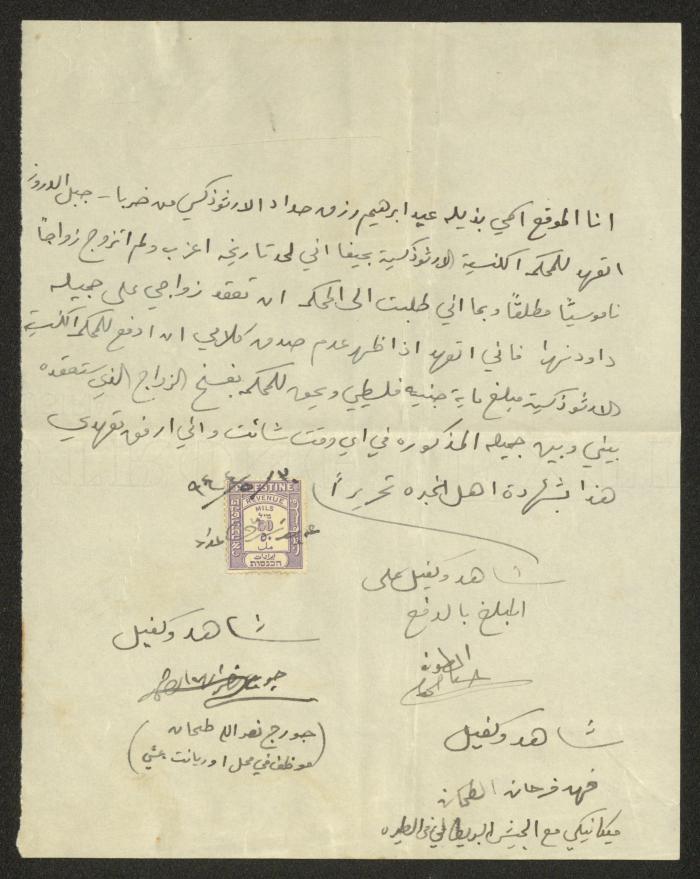 انا الموقع اسمي بذيله عيد ابراهيم رزق حداد الارثوذكسي من خربا - جبل الدروز
اتعهد للمحكمة الكنسية الارثوذكسية بحيفا اني لحد تاريخه اعزب ولم اتزوج زواجاً
ناموسيًا مطلقًا وبما اني طلبت الى المحكمه ان تعقد زواجي على جميله
داود نهرا فاني اتعهد اذا ظهر عدم صدق كلامي ان ادفع للمحكمة الكنسية
الارثوذكسية مبلغ ماية جنيه فلسطيني ويحق للمحكمة بفسخ الزواج الذي ستعقده
بيني وبين جميله المذكوره في اي وقت شائت واني ارفق تعهدي
هذا بشهادة اهل الخبره تحريراً
PALESTINE
REVENUE
MILS
מיל
50
٥٠
مل
ايرادات
הכנסות
حداد
شاهد وكفيل على
المبلغ بالدفع
انطون
شاهد وكفيل
جورج نصرالله طحان
(موظف في محل اوريانت)
شاهد وكفيل
فهد فرحان الطحان
ميكانيكي مع الجيش البريطاني في الطيره